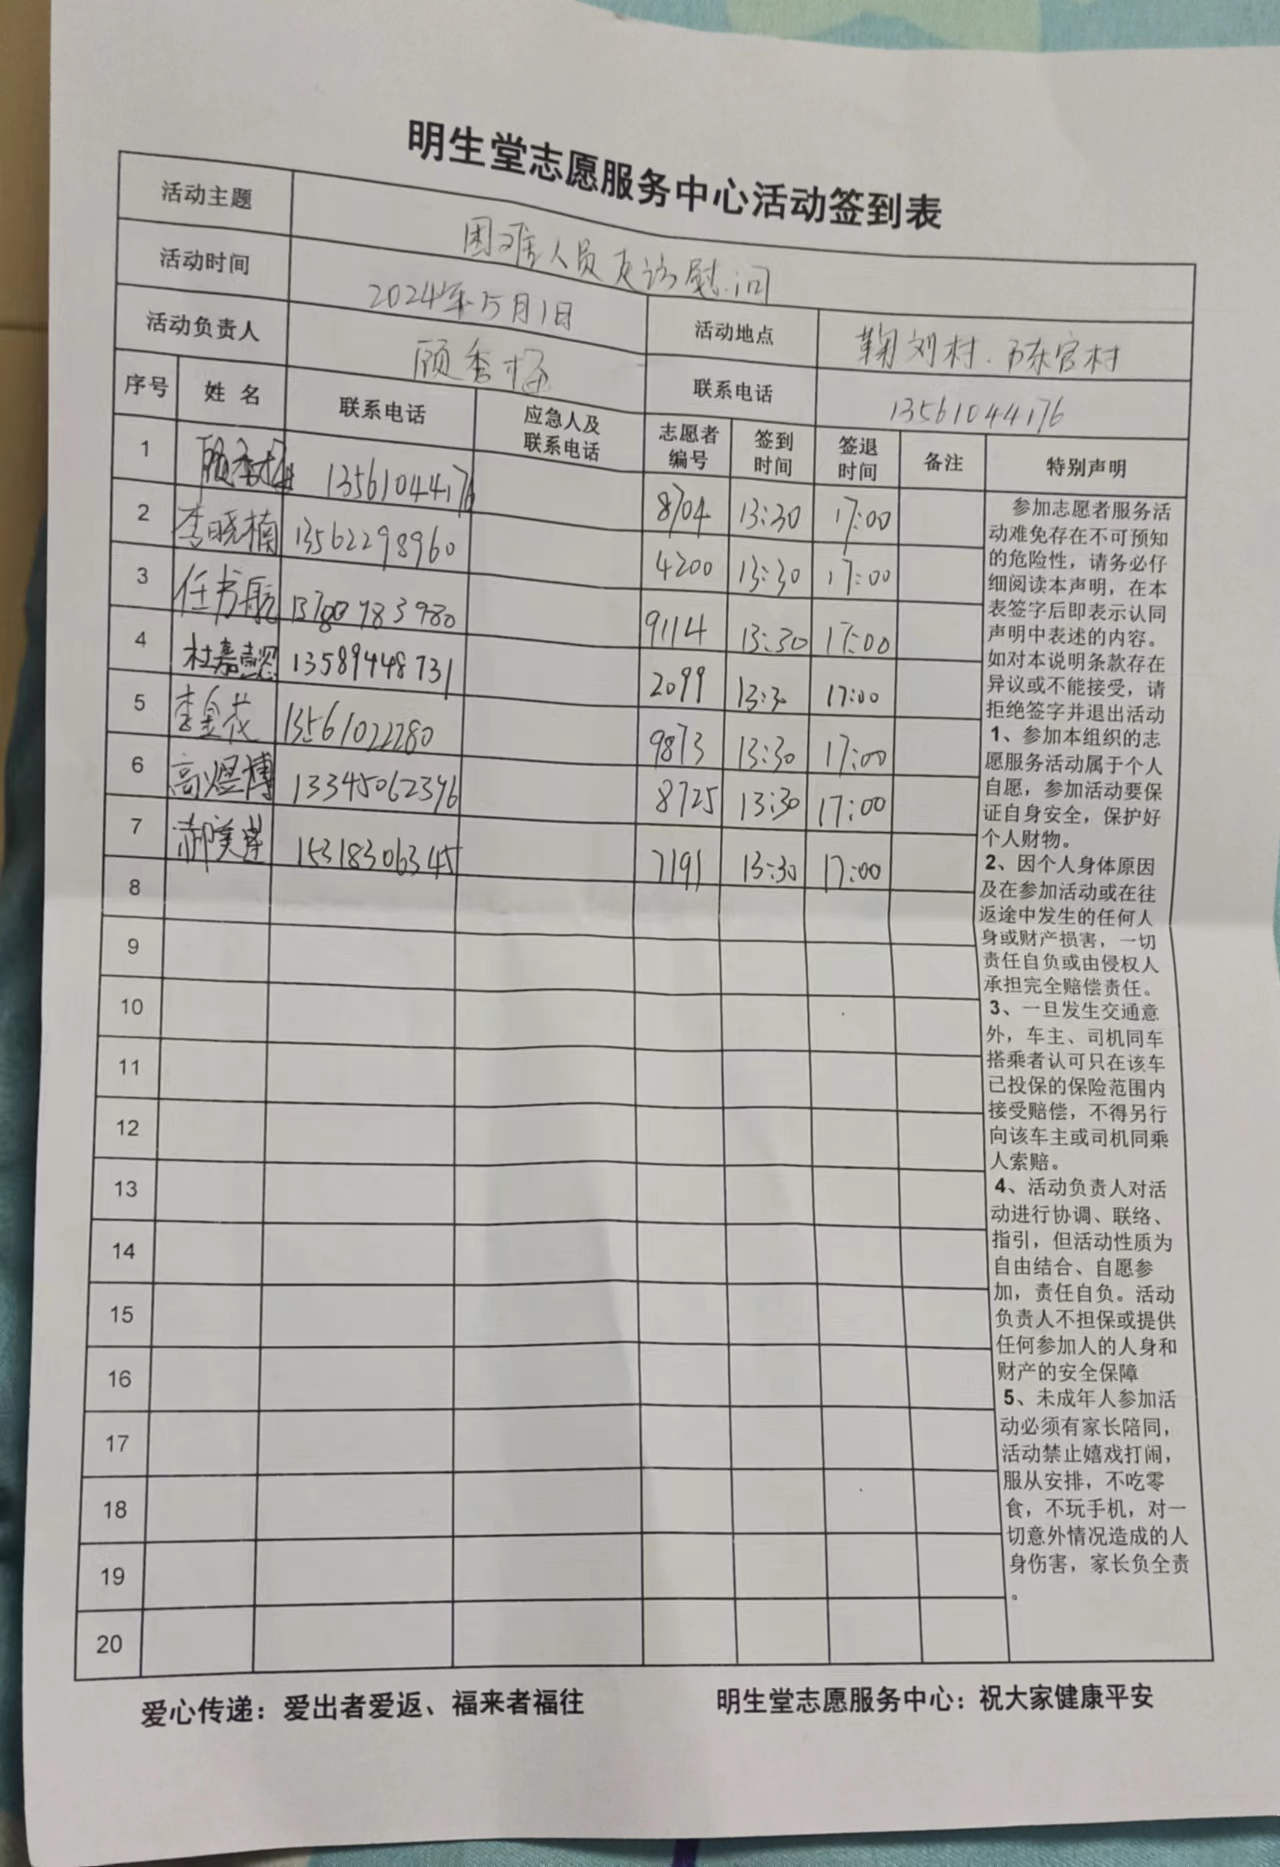 明生堂志愿服务中心活动签到表
活动主题 困难人员走访慰问
活动时间 2024年5月1日 活动地点 鞠刘村、陈官村
活动负责人 顾秀梅 联系电话 13561044176
序号 姓名 联系电话 应急人及联系电话 志愿者编号 签到时间 签退时间 备注 特别声明
1 顾秀梅 13561044176 8704 13:30 17:00
2 李晓楠 13562298960 4200 13:30 17:00
3 任书航 13780983980 9114 13:30 17:00
4 杜嘉懿 13589448731 2099 13:30 17:00
5 李金花 13561022780 9873 13:30 17:00
6 高煜博 13345062396 8725 13:30 17:00
7 郝美莲 15318306345 7191 13:30 17:00
8
9
10
11
12
13
14
15
16
17
18
19
20
参加志愿者服务活
动难免存在不可预知
的危险性，请务必仔
细阅读本声明，在本
表签字后即表示认同
声明中表述的内容。
如对本说明条款存在
异议或不能接受，请
拒绝签字并退出活动
1、参加本组织的志
愿服务活动属于个人
自愿，参加活动要保
证自身安全，保护好
个人财物。
2、因个人身体原因
及在参加活动或在往
返途中发生的任何人
身或财产损害，一切
责任自负或由侵权人
承担完全赔偿责任。
3、一旦发生交通意
外，车主、司机同车
搭乘者认可只在该车
已投保的保险范围内
接受赔偿，不得另行
向该车主或司机同乘
人索赔。
4、活动负责人对活
动进行协调、联络、
指引，但活动性质为
自由结合、自愿参
加，责任自负。活动
负责人不担保或提供
任何参加人的人身和
财产的安全保障
5、未成年人参加活
动必须有家长陪同，
活动禁止嬉戏打闹，
服从安排，不吃零
食，不玩手机，对一
切意外情况造成的人
身伤害，家长负全责
。
爱心传递：爱出者爱返、福来者福往 明生堂志愿服务中心：祝大家健康平安